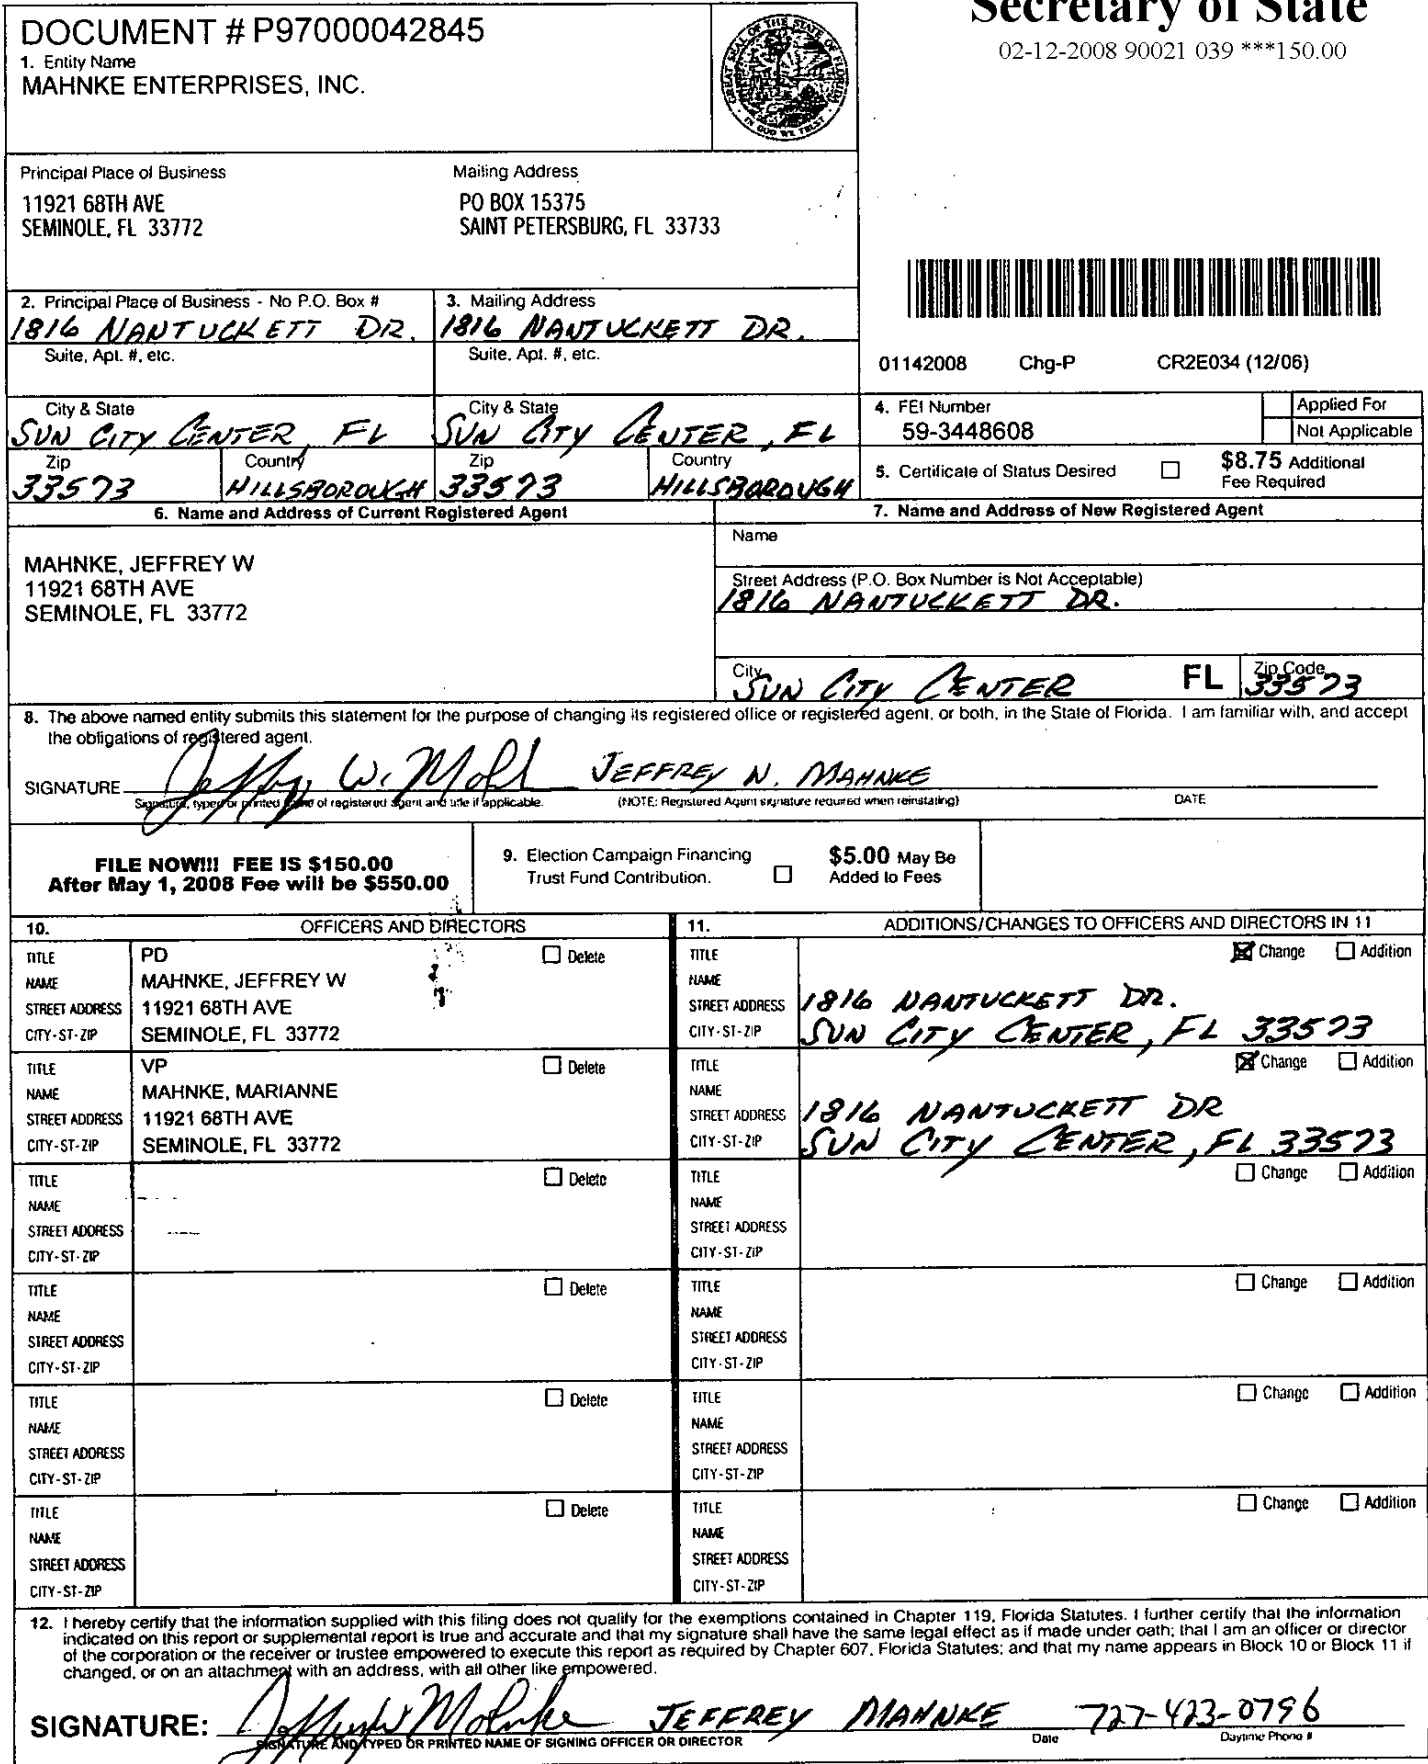 Secretary of State
02-12-2008 90021 039 ***150.00
DOCUMENT # P97000042845
1. Entity Name
MAHNKE ENTERPRISES, INC.
GREAT SEAL OF THE STATE OF FLORIDA
IN GOD WE TRUST
Principal Place of Business
11921 68TH AVE
SEMINOLE, FL 33772
Mailing Address
PO BOX 15375
SAINT PETERSBURG, FL 33733
2. Principal Place of Business - No P.O. Box #
1816 NANTUCKETT DR.
Suite, Apt. #, etc.
3. Mailing Address
1816 NANTUCKETT DR.
Suite, Apt. #, etc.
01142008 Chg-P CR2E034 (12/06)
City & State
SUN CITY CENTER, FL
City & State
SUN CITY CENTER, FL
Zip
33573
Country
HILLSBOROUGH
Zip
33573
Country
HILLSBOROUGH
4. FEI Number
59-3448608
Applied For
Not Applicable
5. Certificate of Status Desired
$8.75 Additional
Fee Required
6. Name and Address of Current Registered Agent
MAHNKE, JEFFREY W
11921 68TH AVE
SEMINOLE, FL 33772
7. Name and Address of New Registered Agent
Name
Street Address (P.O. Box Number is Not Acceptable)
1816 NANTUCKETT DR.
City
SUN CITY CENTER
FL
Zip Code
33573
8. The above named entity submits this statement for the purpose of changing its registered office or registered agent, or both, in the State of Florida. I am familiar with, and accept
the obligations of registered agent.
SIGNATURE JEFFREY W. MAHNKE
Signature, typed or printed name of registered agent and title if applicable. (NOTE: Registered Agent signature required when reinstating) DATE
FILE NOW!!! FEE IS $150.00
After May 1, 2008 Fee will be $550.00
9. Election Campaign Financing
Trust Fund Contribution.
$5.00 May Be
Added to Fees
10. OFFICERS AND DIRECTORS
TITLE PD Delete
NAME MAHNKE, JEFFREY W
STREET ADDRESS 11921 68TH AVE
CITY-ST-ZIP SEMINOLE, FL 33772
TITLE VP Delete
NAME MAHNKE, MARIANNE
STREET ADDRESS 11921 68TH AVE
CITY-ST-ZIP SEMINOLE, FL 33772
TITLE Delete
NAME
STREET ADDRESS
CITY-ST-ZIP
TITLE Delete
NAME
STREET ADDRESS
CITY-ST-ZIP
TITLE Delete
NAME
STREET ADDRESS
CITY-ST-ZIP
TITLE Delete
NAME
STREET ADDRESS
CITY-ST-ZIP
11. ADDITIONS/CHANGES TO OFFICERS AND DIRECTORS IN 11
TITLE Change Addition
NAME
STREET ADDRESS 1816 NANTUCKETT DR.
CITY-ST-ZIP SUN CITY CENTER, FL 33573
TITLE Change Addition
NAME
STREET ADDRESS 1816 NANTUCKETT DR
CITY-ST-ZIP SUN CITY CENTER, FL 33573
TITLE Change Addition
NAME
STREET ADDRESS
CITY-ST-ZIP
TITLE Change Addition
NAME
STREET ADDRESS
CITY-ST-ZIP
TITLE Change Addition
NAME
STREET ADDRESS
CITY-ST-ZIP
TITLE Change Addition
NAME
STREET ADDRESS
CITY-ST-ZIP
12. I hereby certify that the information supplied with this filing does not qualify for the exemptions contained in Chapter 119, Florida Statutes. I further certify that the information
indicated on this report or supplemental report is true and accurate and that my signature shall have the same legal effect as if made under oath; that I am an officer or director
of the corporation or the receiver or trustee empowered to execute this report as required by Chapter 607, Florida Statutes; and that my name appears in Block 10 or Block 11 if
changed, or on an attachment with an address, with all other like empowered.
SIGNATURE: JEFFREY MAHNKE 727-423-0796
SIGNATURE AND TYPED OR PRINTED NAME OF SIGNING OFFICER OR DIRECTOR Date Daytime Phone #